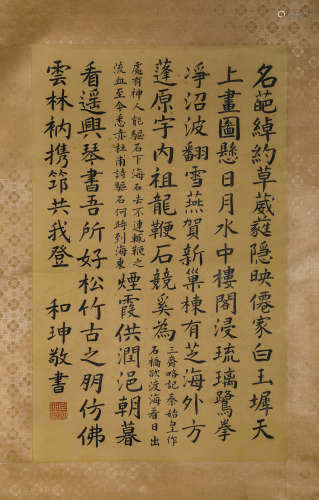 名葩綽約草葳蕤隱映僊家白玉墀天
上畫圖懸日月水中樓閣浸琉璃鷺拳
淨沼波翻雪燕賀新巢棟有芝海外方
蓬原字内祖龍鞭石競奚為三齊略記秦始皇作石橋欲渡海看日出
處有神人能驅石下海石去不速輒鞭之流血至今悉赤杜南詩驅石何時到海東煙霞供潤浥朝暮
看遥興琴書吾所好松竹古之朋仿佛
雲林衲携筇共我登
和珅敬書